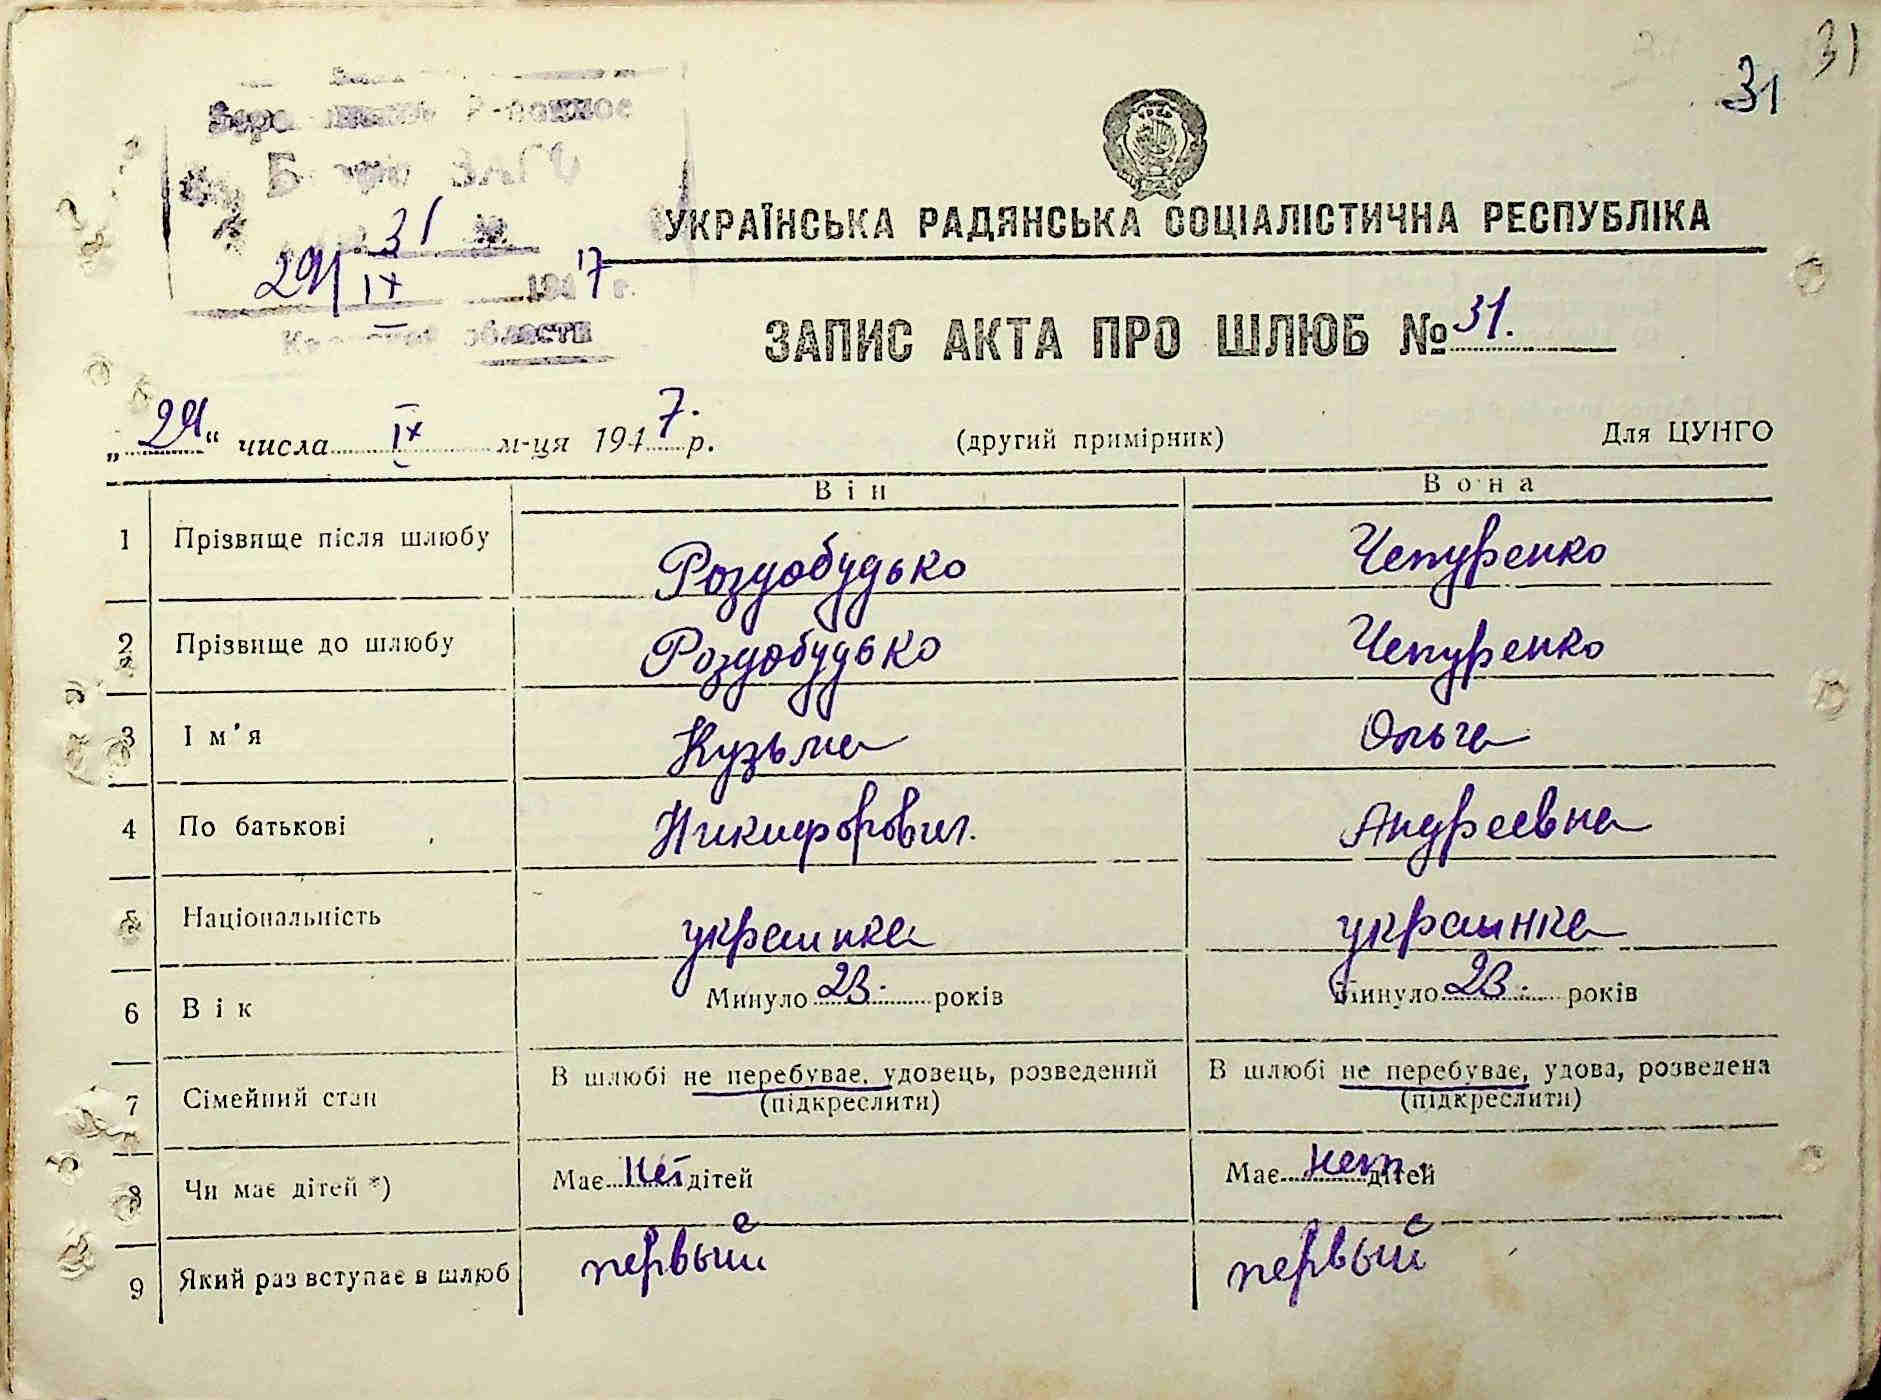 31
31
31
29/IX 1947 г.
области
УКРАЇНСЬКА РАДЯНСЬКА СОЦІАЛІСТИЧНА РЕСПУБЛІКА
ЗАПИС АКТА ПРО ШЛЮБ № 31.
„29“ числа IX м-ця 1947. р. (другий примірник) Для ЦУНГО
Він Вона
1 Прізвище після шлюбу Роздобудько Чепуренко
2 Прізвище до шлюбу Роздобудько Чепуренко
3 Ім'я Кузьма Ольга
4 По батькові Никифорович. Андреевна
5 Національність украинка украинка
6 Вік Минуло 23. років Минуло 23. років
7 Сімейний стан В шлюбі не перебуває, удовець, розведений В шлюбі не перебуває, удова, розведена
(підкреслити) (підкреслити)
8 Чи має дітей *) Має нет дітей Має нет. дітей
9 Який раз вступає в шлюб первый первый